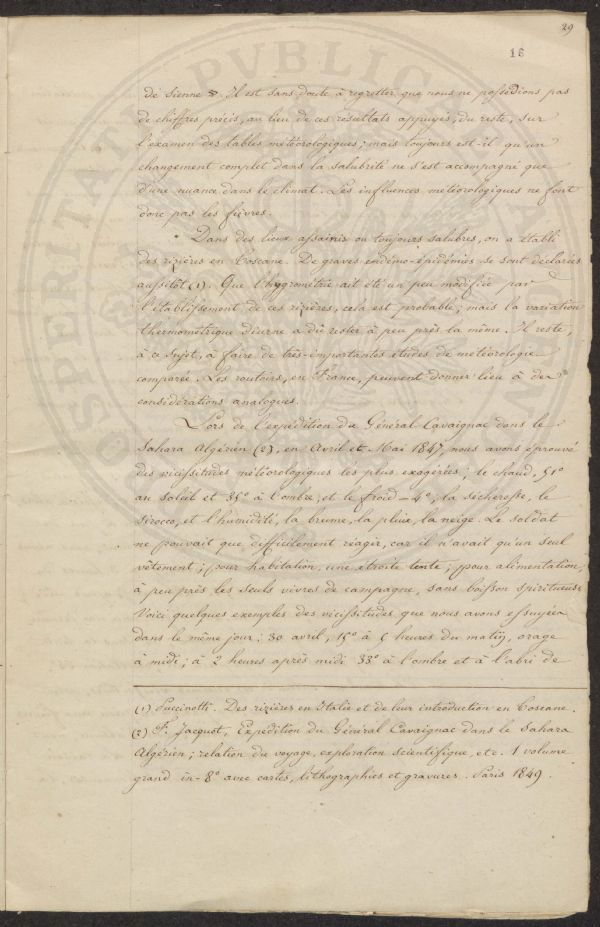 29
16
de Sienne ». Il est sans doute à regretter que nous ne possédions pas
de chiffres précis, au lieu de ces résultats appuyés, du reste, sur
l'examen des tables météorologiques; mais toujours est-il qu'un
changement complet dans la salubrité ne s'est accompagné que
d'une nuance dans le climat. Les influences météorologiques ne font
donc pas les fièvres.
Dans des lieux assainis ou toujours salubres, on a établi
des rizières en Toscane. De graves endémo-épidémies se sont déclarées
aussitôt (1). Que l'hygrométrie ait été un peu modifiée par
l'établissement de ces rizières, cela est probable; mais la variation
thermométrique diurne a dû rester à peu près la même. Il reste,
à ce sujet, à faire de très-importantes études de météorologie
comparée. Les routoirs, en France, peuvent donner lieu à des
considérations analogues.
Lors de l'expédition du Général Cavaignac dans le
Sahara Algérien (2), en Avril et Mai 1847, nous avons éprouvé
des vicissitudes météorologiques les plus exagérées; le chaud, 51°
au soleil et 35° à l'ombre; et le froid - 4°, la sécheresse, le
sirocco, et l'humidité, la brume, la pluie, la neige. Le soldat
ne pouvait que difficilement réagir, car il n'avait qu'un seul
vêtement; pour habitation, une étroite tente; pour alimentation,
à peu près les seuls vivres de campagne, sans boisson spiritueuse.
Voici quelques exemples des vicissitudes que nous avons essuyées
dans le même jour: 30 avril, 15° à 6 heures du matin, orage
à midi; à 2 heures après midi 33° à l'ombre et à l'abri de
(1) Puccinotti. Des rizières en Italie et de leur introduction en Toscane.
(2) F. Jacquot, Expédition du Général Cavaignac dans le Sahara
Algérien; relation du voyage, exploration scientifique, etc. 1 volume
grand in-8° avec cartes, lithographies et gravures. Paris 1849.